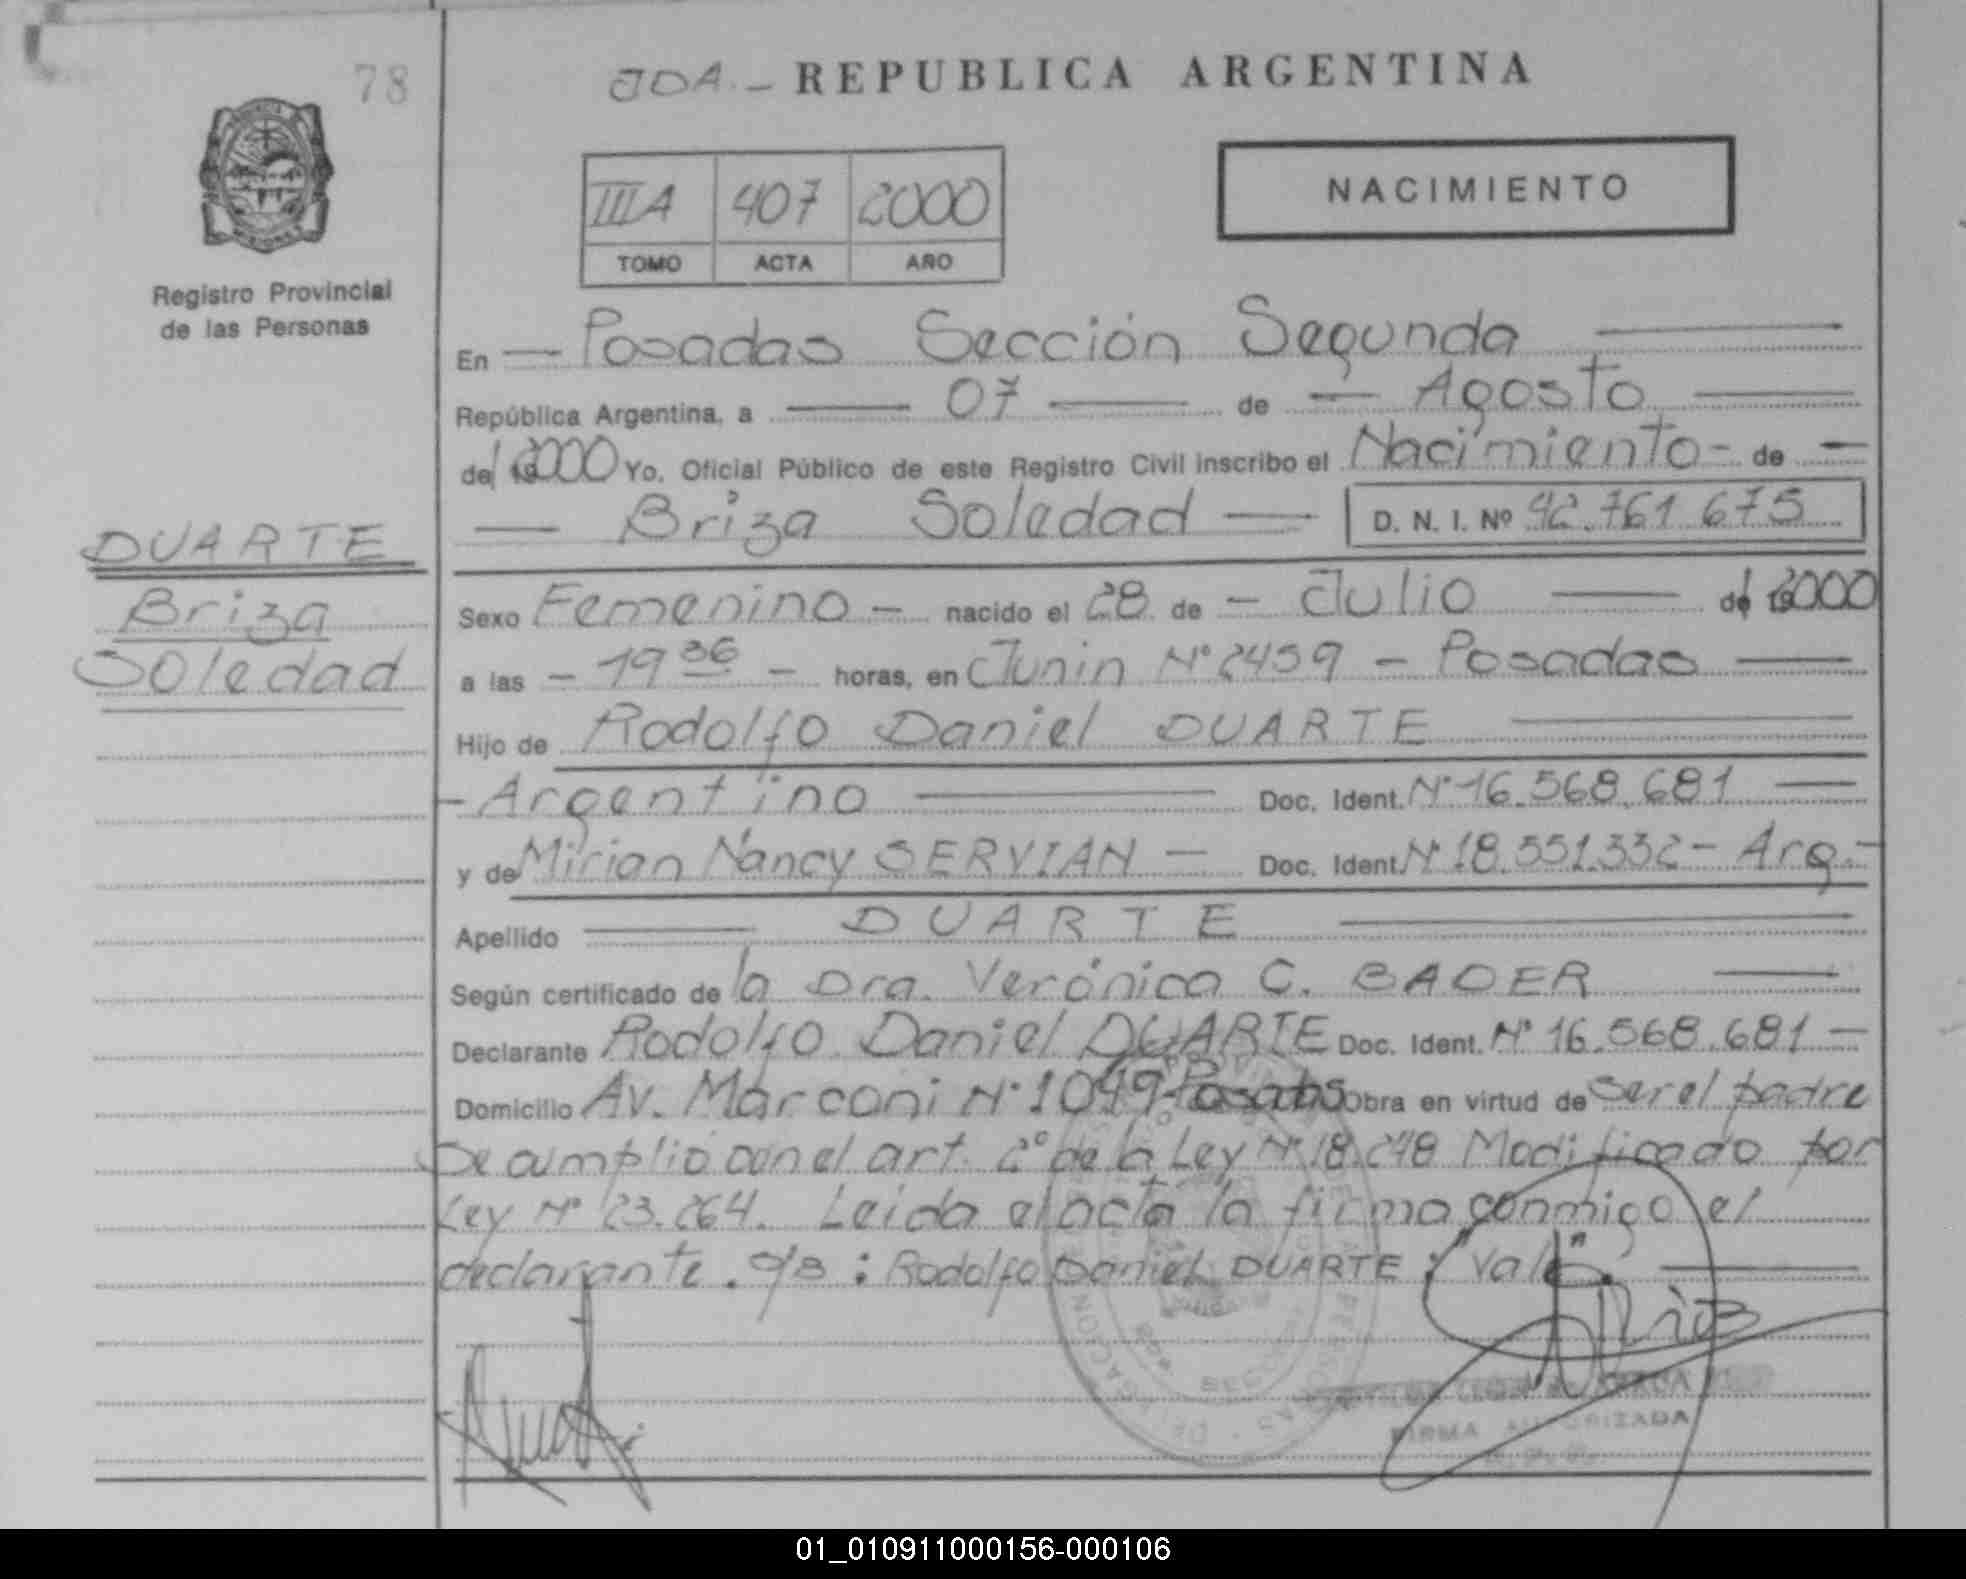 78
JDA.- REPUBLICA ARGENTINA
IIIA 407 2000
TOMO ACTA AÑO
NACIMIENTO
Registro Provincial
de las Personas
En — Posadas Sección Segunda —
República Argentina, a — 07 — de — Agosto —
del 2000 Yo, Oficial Público de este Registro Civil inscribo el Nacimiento - de —
— Briza Soledad — D. N. I. Nº 42.761.675
DUARTE
Briza
Soledad
Sexo Femenino - nacido el 28 de - Julio — del 2000
a las - 19 36 - horas, en Junin Nº 2459 - Posadas —
Hijo de Rodolfo Daniel DUARTE —
- Argentino — Doc. Ident. Nº 16.568.681 —
y de Mirian Nancy SERVIAN — Doc. Ident. Nº 18.551.332 - Arg.-
Apellido — DUARTE —
Según certificado de la Dra. Verónica C. BAOER —
Declarante Rodolfo Daniel DUARTE Doc. Ident. Nº 16.568.681 —
Domicilio Av. Marconi Nº 1049 - Posadas Obra en virtud de ser el padre
Se cumplió con el art. 2º de la Ley Nº 18.248 Modificado por
Ley Nº 23.264. Leida el acta la firma conmigo el
declarante. s/b : Rodolfo Daniel DUARTE : "Vale". —
FIRMA AUTORIZADA
01_010911000156-000106